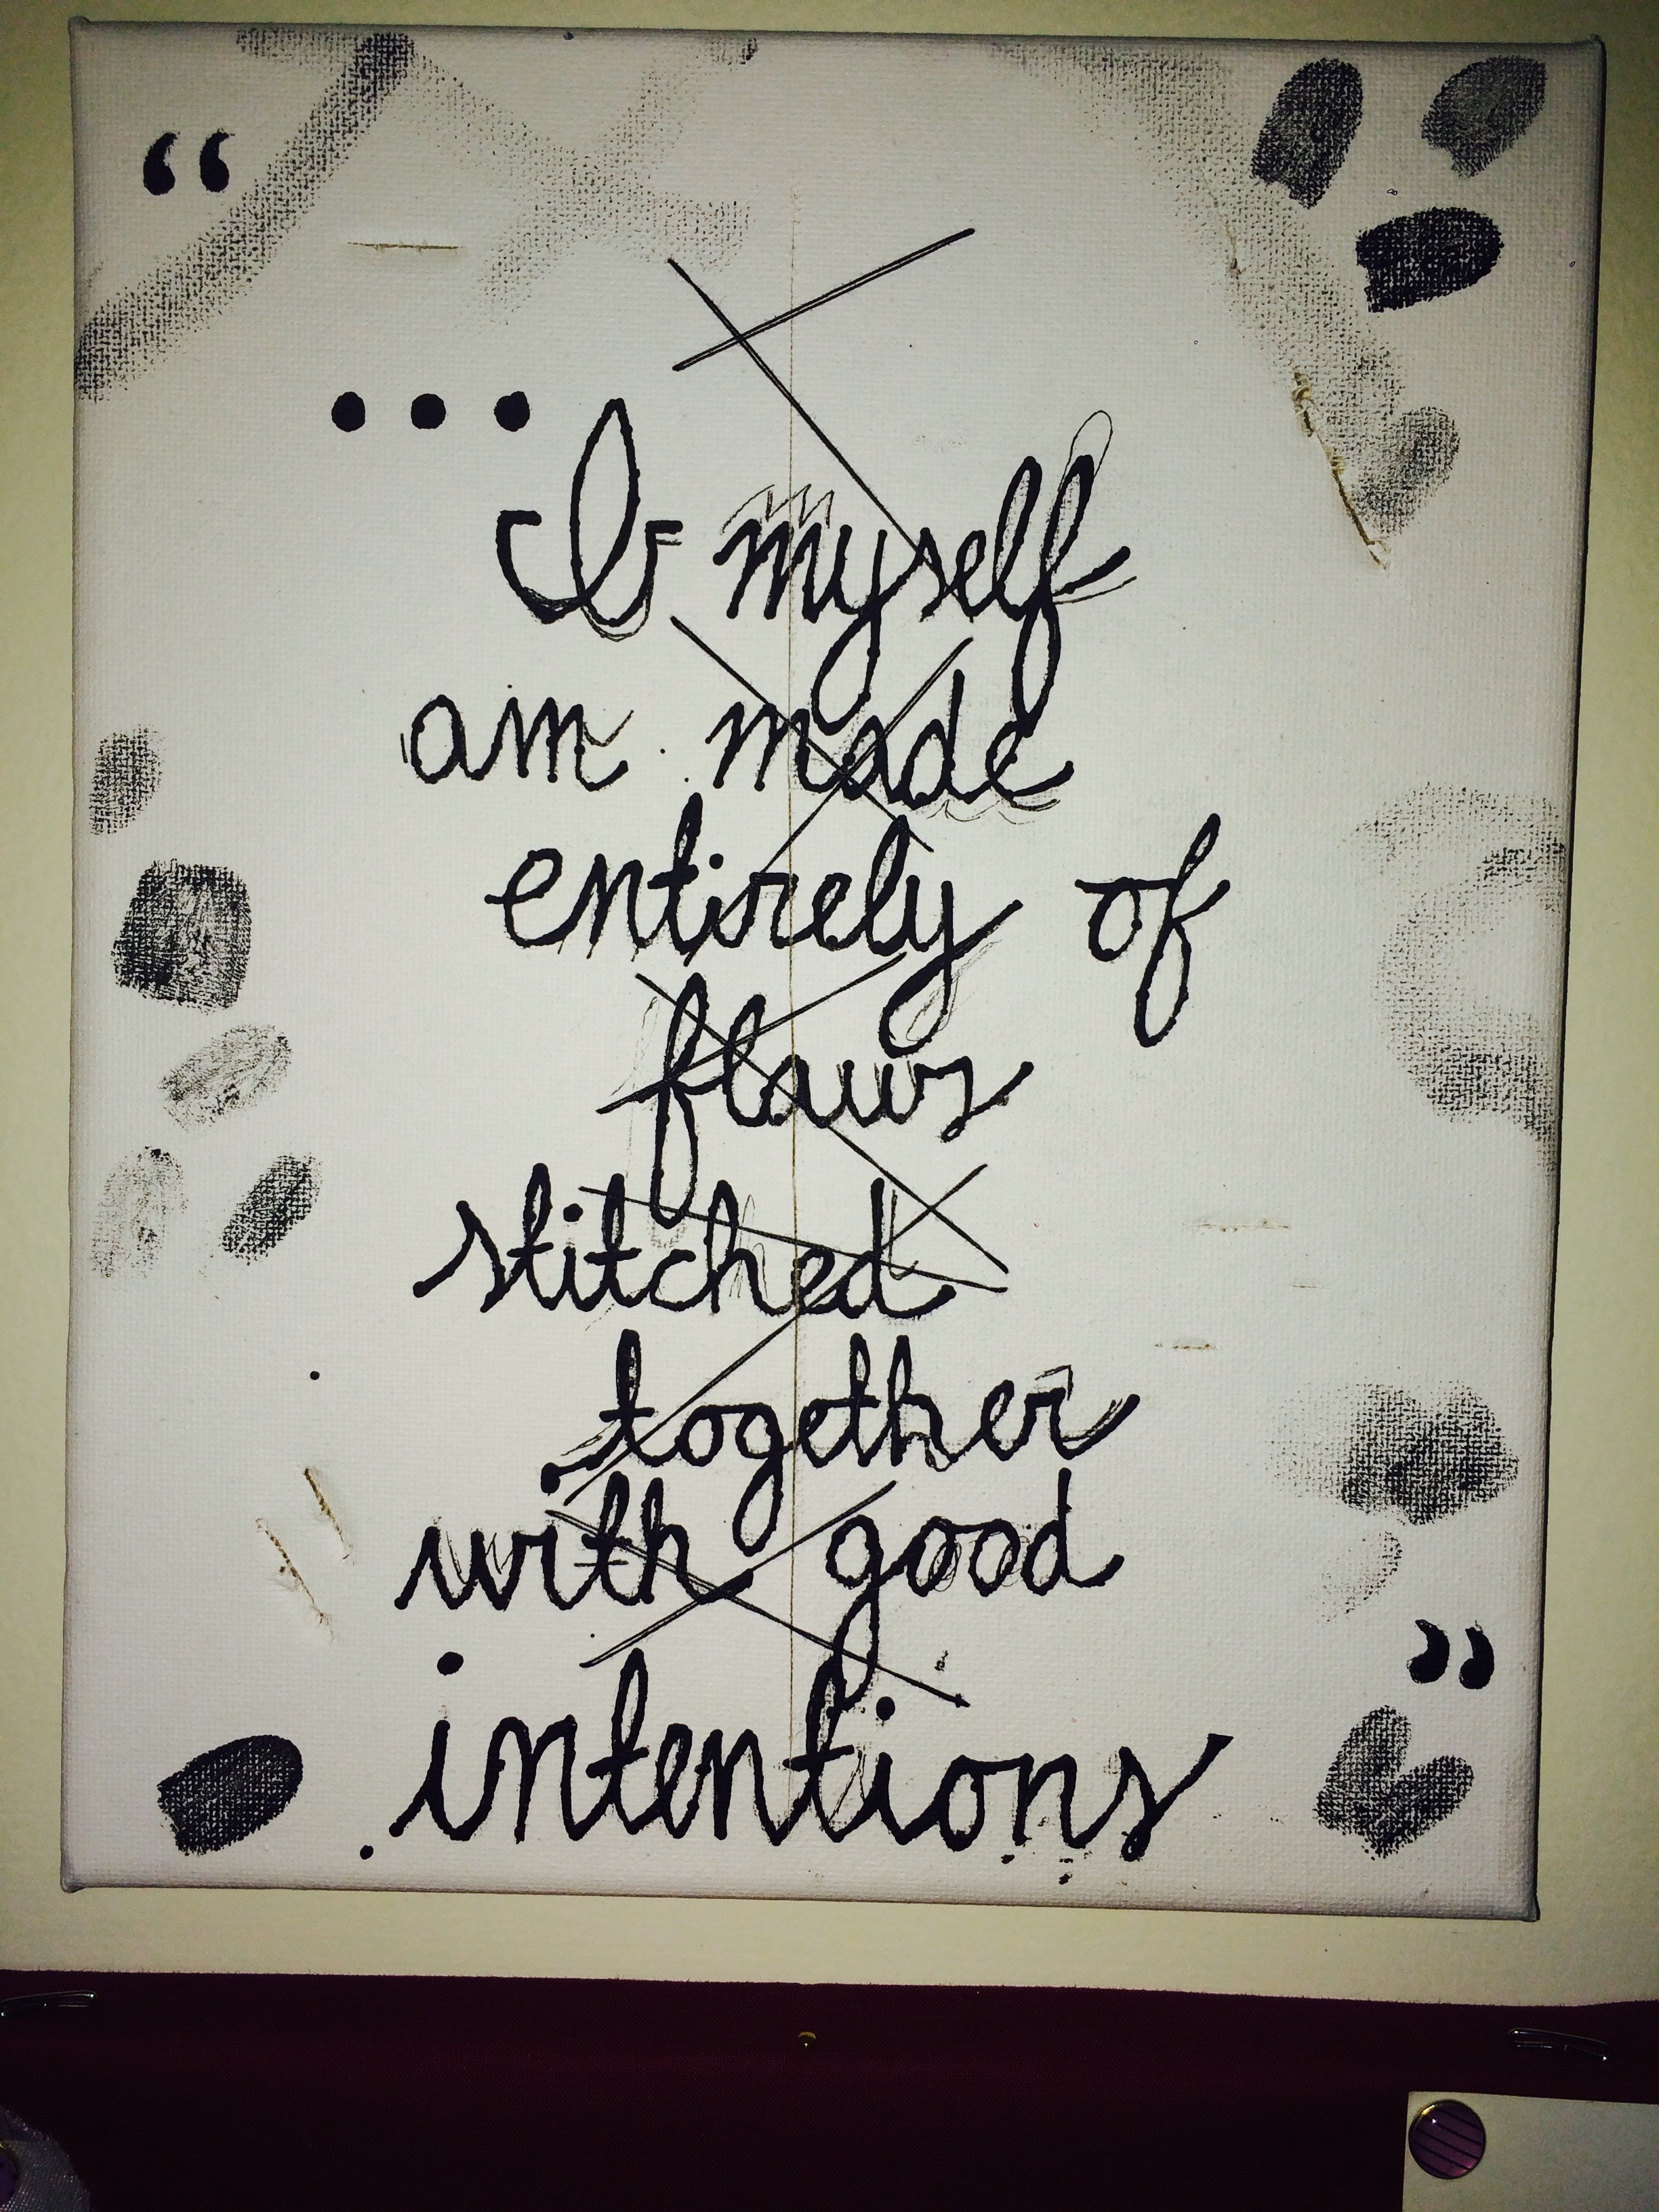 “
...I myself
am made
entirely of
flaws
stitched
together
with good
intentions
”